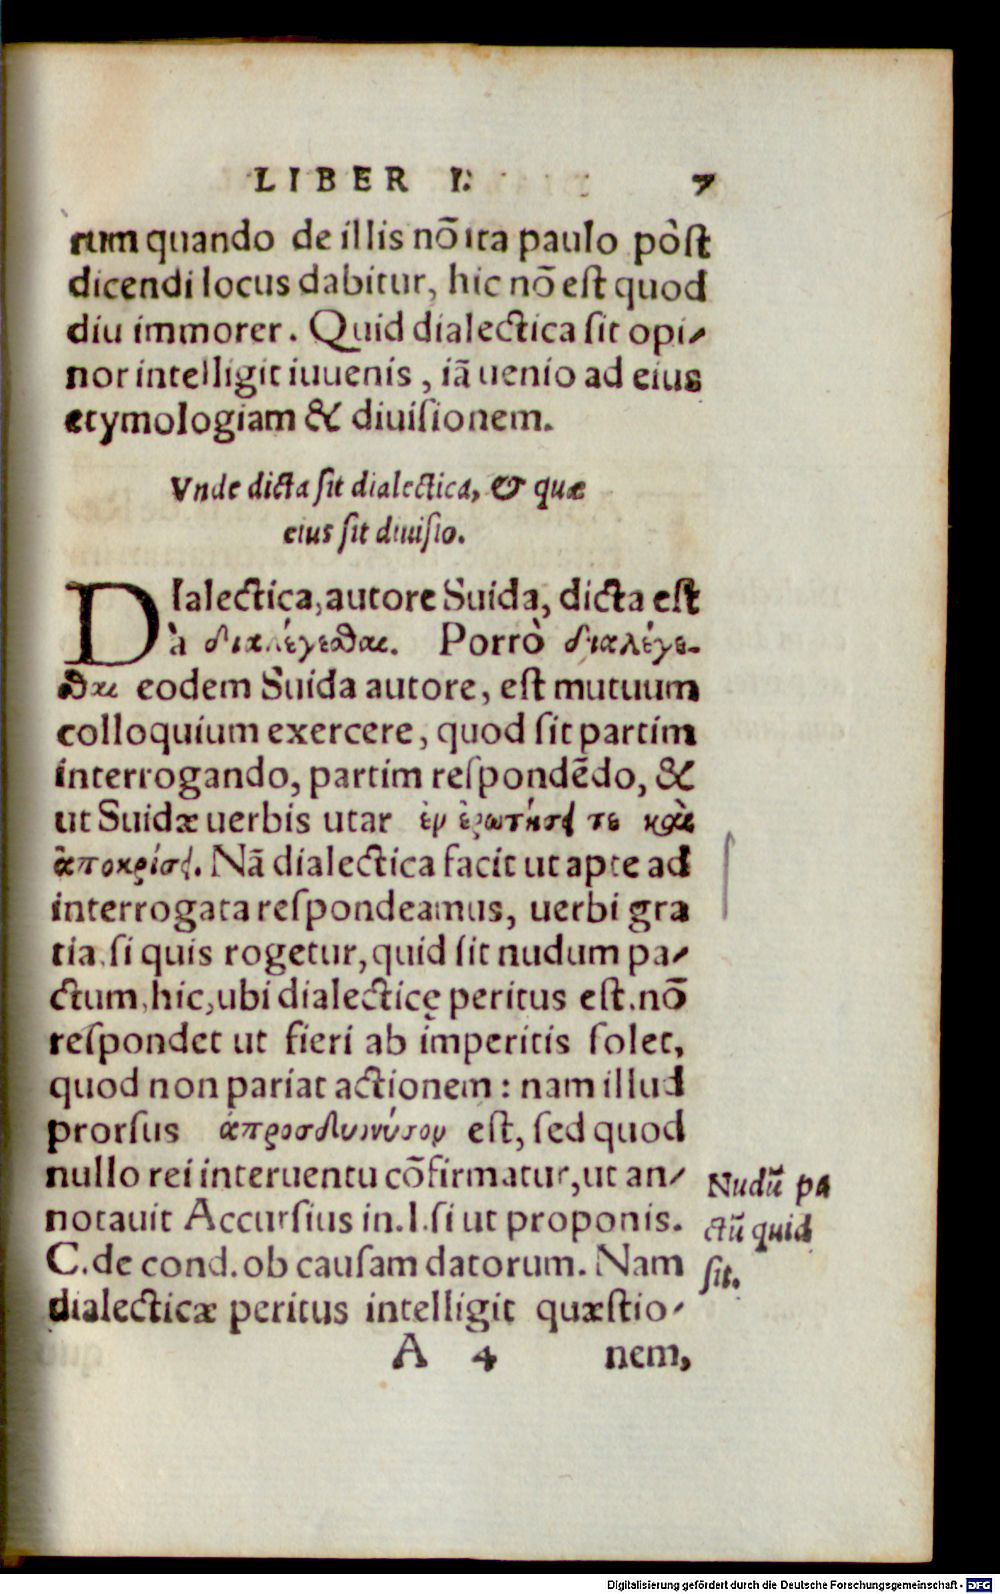 LIBER I. 7
rum quando de illis nõ ita paulo pòst
dicendi locus dabitur, hic nõ est quod
diu immorer. Quid dialectica sit opi-
nor intelligit iuuenis, iã uenio ad eius
etymologiam & diuisionem.
Vnde dicta sit dialectica, & quæ
eius sit diuisio.
DIalectica, autore Suida, dicta est
à διαλέγεσθαι. Porrò διαλέγε-
σθαι eodem Suida autore, est mutuum
colloquium exercere, quod sit partim
interrogando, partim respondẽdo, &
ut Suidæ uerbis utar ἐν ἐρωτήσει τε καὶ
ἀποκρίσει. Nã dialectica facit ut apte ad
interrogata respondeamus, uerbi gra
tia, si quis rogetur, quid sit nudum pa-
ctum, hic, ubi dialecticę peritus est, nõ
respondet ut fieri ab imperitis solet,
quod non pariat actionem: nam illud
prorsus ἀπροσδιόνυσον est, sed quod
nullo rei interuentu cõfirmatur, ut an-
notauit Accursius in.l.si ut proponis.
C.de cond.ob causam datorum. Nam
dialecticæ peritus intelligit quæstio-
Nudũ pa
ctũ quid
sit.
A 4 nem,
Digitalisierung gefördert durch die Deutsche Forschungsgemeinschaft - DFG